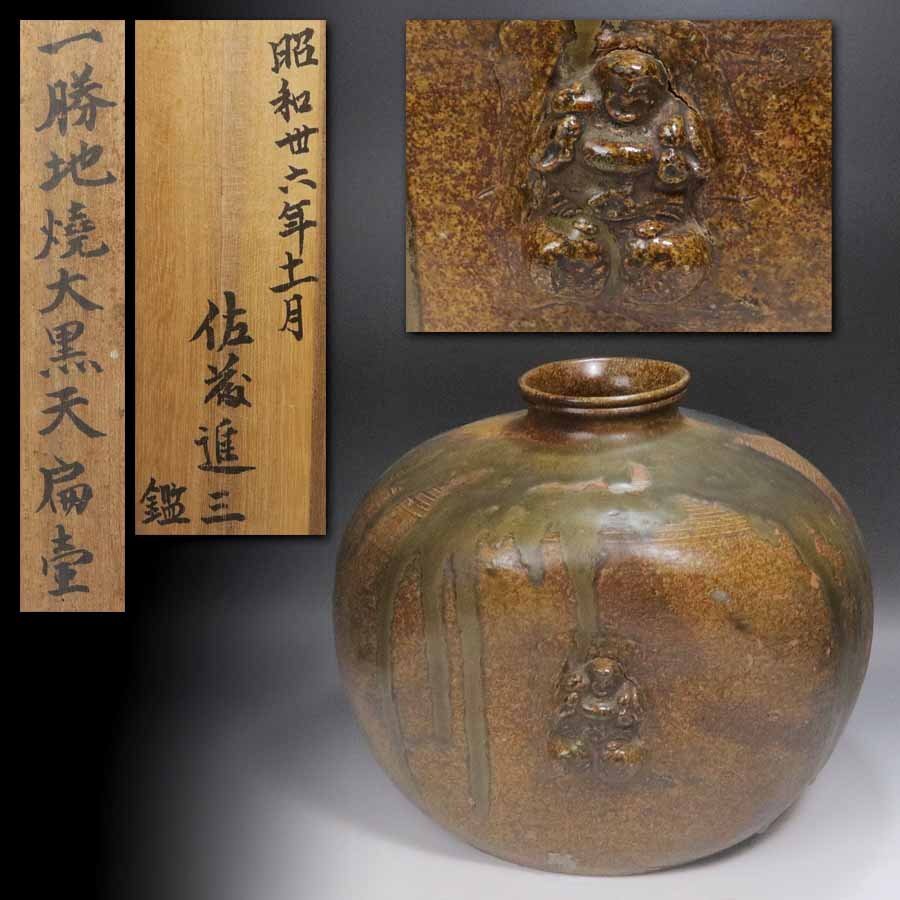 一勝地燒大黒天扁壷
昭和丗六年十一月
佐藤進三
鑑